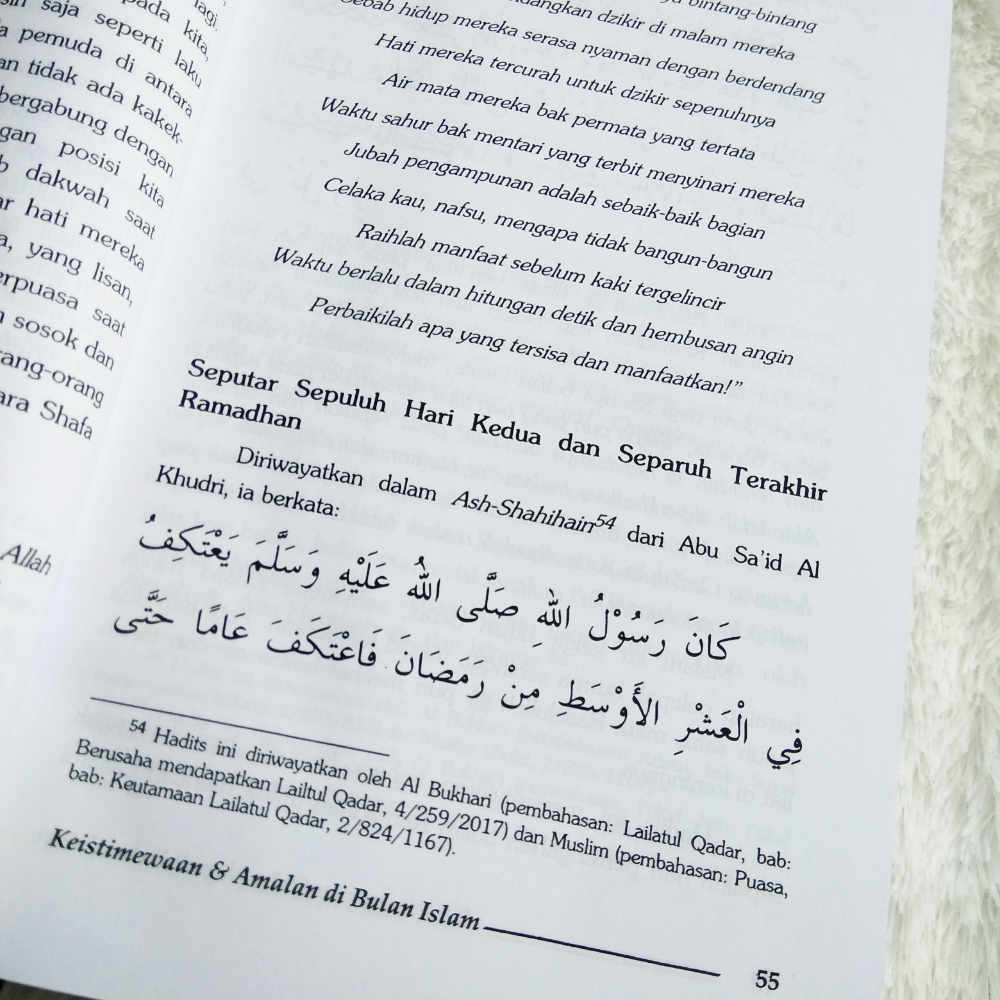 lagi.
pada kita,
saja seperti laku
pemuda di antara
tidak ada kakek-
bergabung dengan
posisi kita
dakwah saat
hati mereka
yang lisan,
saat
sosok dan
ara Shafa
Allah
bintang-bintang
dzikir di malam mereka
Sebab hidup mereka serasa nyaman dengan berdendang
Hati mereka tercurah untuk dzikir sepenuhnya
Air mata mereka bak permata yang tertata
Waktu sahur bak mentari yang terbit menyinari mereka
Jubah pengampunan adalah sebaik-baik bagian
Celaka kau, nafsu, mengapa tidak bangun-bangun
Raihlah manfaat sebelum kaki tergelincir
Waktu berlalu dalam hitungan detik dan hembusan angin
Perbaikilah apa yang tersisa dan manfaatkan!”
Seputar Sepuluh Hari Kedua dan Separuh Terakhir
Ramadhan
Diriwayatkan dalam Ash-Shahihain54 dari Abu Sa’id Al
Khudri, ia berkata:
كَانَ رَسُوْلُ اللهِ صَلَّى اللهُ عَلَيْهِ وَسَلَّمَ يَعْتَكِفُ
فِي الْعَشْرِ الأَوْسَطِ مِنْ رَمَضَانَ فَاعْتَكَفَ عَامًا حَتَّى
54 Hadits ini diriwayatkan oleh Al Bukhari (pembahasan: Lailatul Qadar, bab:
Berusaha mendapatkan Lailtul Qadar, 4/259/2017) dan Muslim (pembahasan: Puasa,
bab: Keutamaan Lailatul Qadar, 2/824/1167).
Keistimewaan & Amalan di Bulan Islam
55